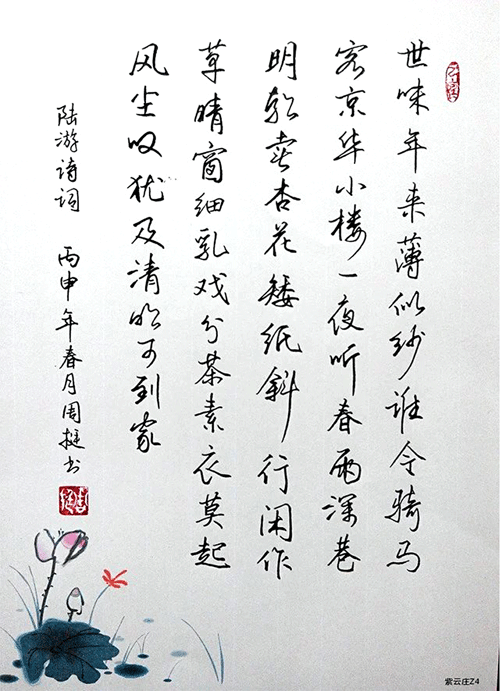 世味年来薄似纱谁令骑马
客京华小楼一夜听春雨深巷
明朝卖杏花矮纸斜行闲作
草晴窗细乳戏分茶素衣莫起
风尘叹犹及清明可到家
陆游诗词 丙申年春月周挺书
周挺
紫云庄Z4